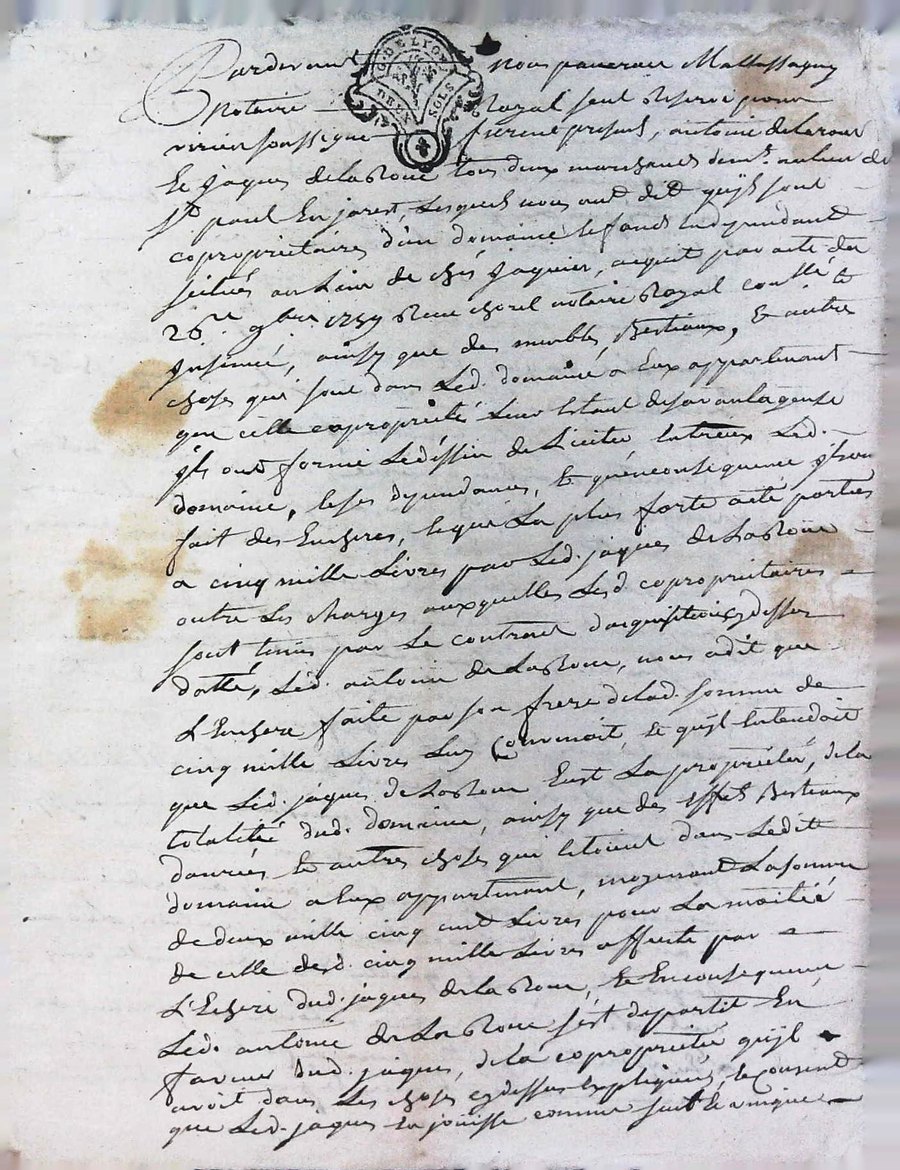 G. DE LYON
DEUX SOLS
Pardevant nous
Notaire Royal seul reservé pour
virieu soussigné furent presents, antoine delaroue
Et Jaques delaRoue tous deux marchands au lieu de
St. paul En jarest, Lesquels nous ont dit qu'ils sont
coproprietaires d'un domaine le fonds En dependant
scitués au Lieu de chés Jaquier, acquit par acte du
26me. 9bre 1759 notaire Royal controllé et
Insinué, ainsy que des meubles, Bestiaux, Et autres
choses qui sont dans Led. domaine a Eux appartenant
que cette coproprieté Leur Etant desavantageuse
Ils ont formé Le dessein de Liciter Entreux Led.
domaine, les ses dependances, Et qu'en consequence Ils ont
fait des Encheres, Et que La plus forte a eté portée
a cinq mille Livres par Led. jaques de LaRoue
outre Les charges auxquelles Lesd. coproprietaires
sont tenus par Le contract d'acquisition cydessus
datté, Led. antoine de LaRoue, nous a dit que
L'Enchere faite par son frere de lad. somme de
cinq mille Livres Luy Convenoit, Et qu'il Entendoit
que Led. jaques de LaRoue Eust La proprieté, de la
totalité dud. domaine, ainsy que des Effets Bestiaux
danrées Et autres choses qui Etoient dans Ledit
domaine a Eux appartenant, moyenant La somme
de deux mille cinq cent Livres pour La moitié
de celle desd. cinq mille Livres offerte par
L'Enchere dud. jaques de LaRoue, Et En consequence
Led. antoine de LaRoue s'est departit En
faveur dud. jaques, de la coproprieté qu'il
avoit dans Les choses cydessus Expliquées, Et consent
que Led. jaques En jouisse comme seul Et unique